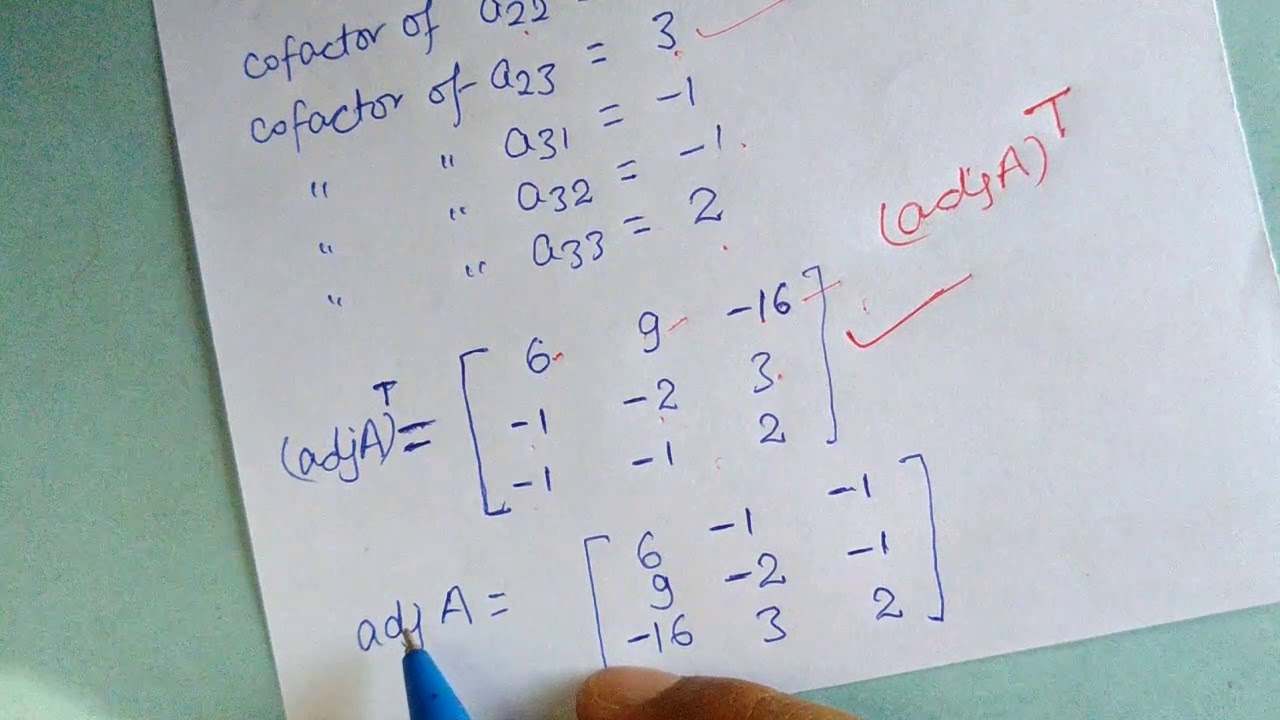 cofactor of a22
cofactor of a23 = 3
" " a31 = -1
" " a32 = -1
" " a33 = 2
(adjA)^T
(adjA)^T = [ 6 9 -16
-1 -2 3
-1 -1 2 ]
adj A = [ 6 -1 -1
9 -2 -1
-16 3 2 ]